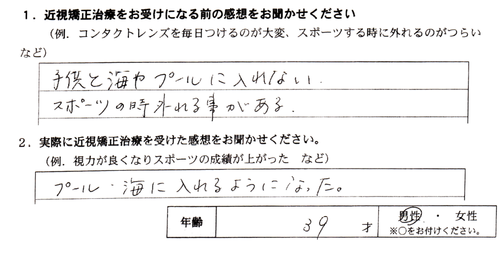 1. 近視矯正治療をお受けになる前の感想をお聞かせください
(例. コンタクトレンズを毎日つけるのが大変、スポーツする時に外れるのがつらい
など)
子供と海やプールに入れない.
スポーツの時外れる事がある.
2. 実際に近視矯正治療を受けた感想をお聞かせください。
(例. 視力が良くなりスポーツの成績が上がった など)
プール・海に入れるようになった。
年齢 39 才 男性 ・ 女性
※○をお付けください。